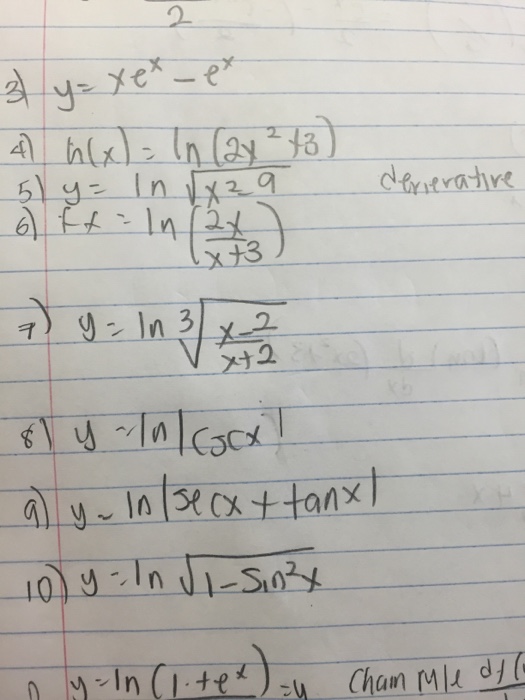 2
3) y = xe^x - e^x
4) h(x) = ln (2x² + 3)
5) y = ln √x² - 9 derierative
6) fx = ln (2x/x+3)
7) y = ln ³√x-2/x+2
8) y = ln |cscx|
9) y = ln |secx + tanx|
10) y = ln √1 - sin²x
y = ln (1 + e^x) = u Chain rule